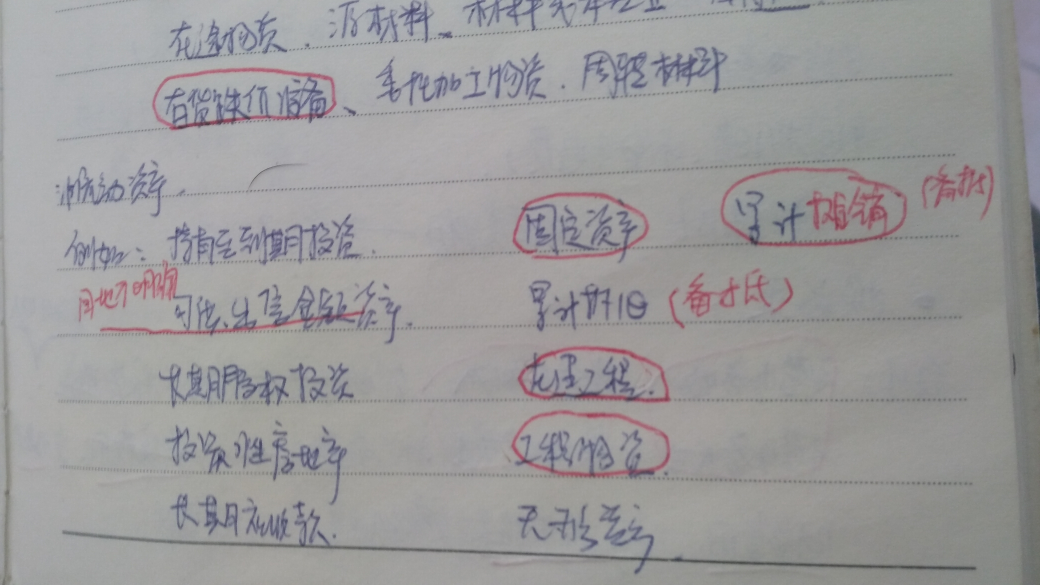 在途物资、原材料、材料
存货跌价准备、委托加工物资、周转材料
非流动资产.
例如: 持有至到期投资. 固定资产 累计摊销 (备抵)
目地不明确 可供出售金融资产. 累计折旧 (备抵)
长期股权投资 在建工程.
投资性房地产 工程物资.
长期应收款. 无形资产.